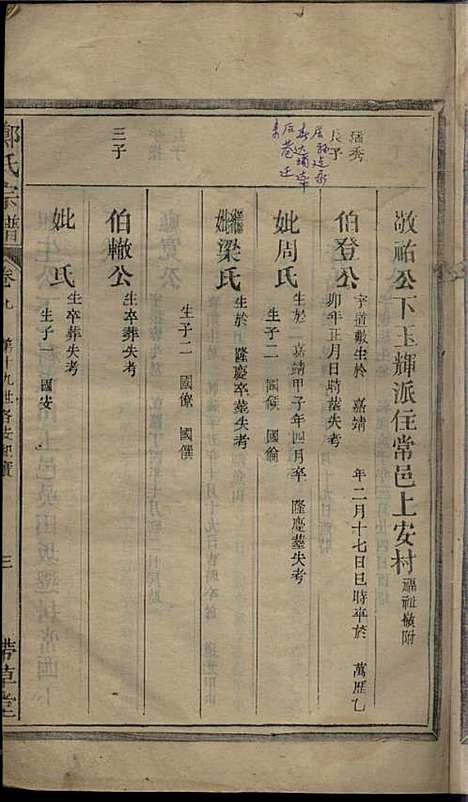 敬祐公下玉輝派住常邑上安村
福祉嶺附
猶秀
長子
伯登公
字猶數生於 嘉靖 年二月十七日巳時卒於 萬歷乙
卯年正月日時葬失考
妣周氏
生於 嘉靖甲子年四月卒 隆慶葬失考
生子二 國候 國倫
繼妣梁氏
生於 隆慶卒葬失考
生子二 國僚 國僎
三子
伯轍公
生卒葬失考
妣 氏
生卒葬失考
生子一 國安
鄭氏宗譜
卷九
三
帶草堂